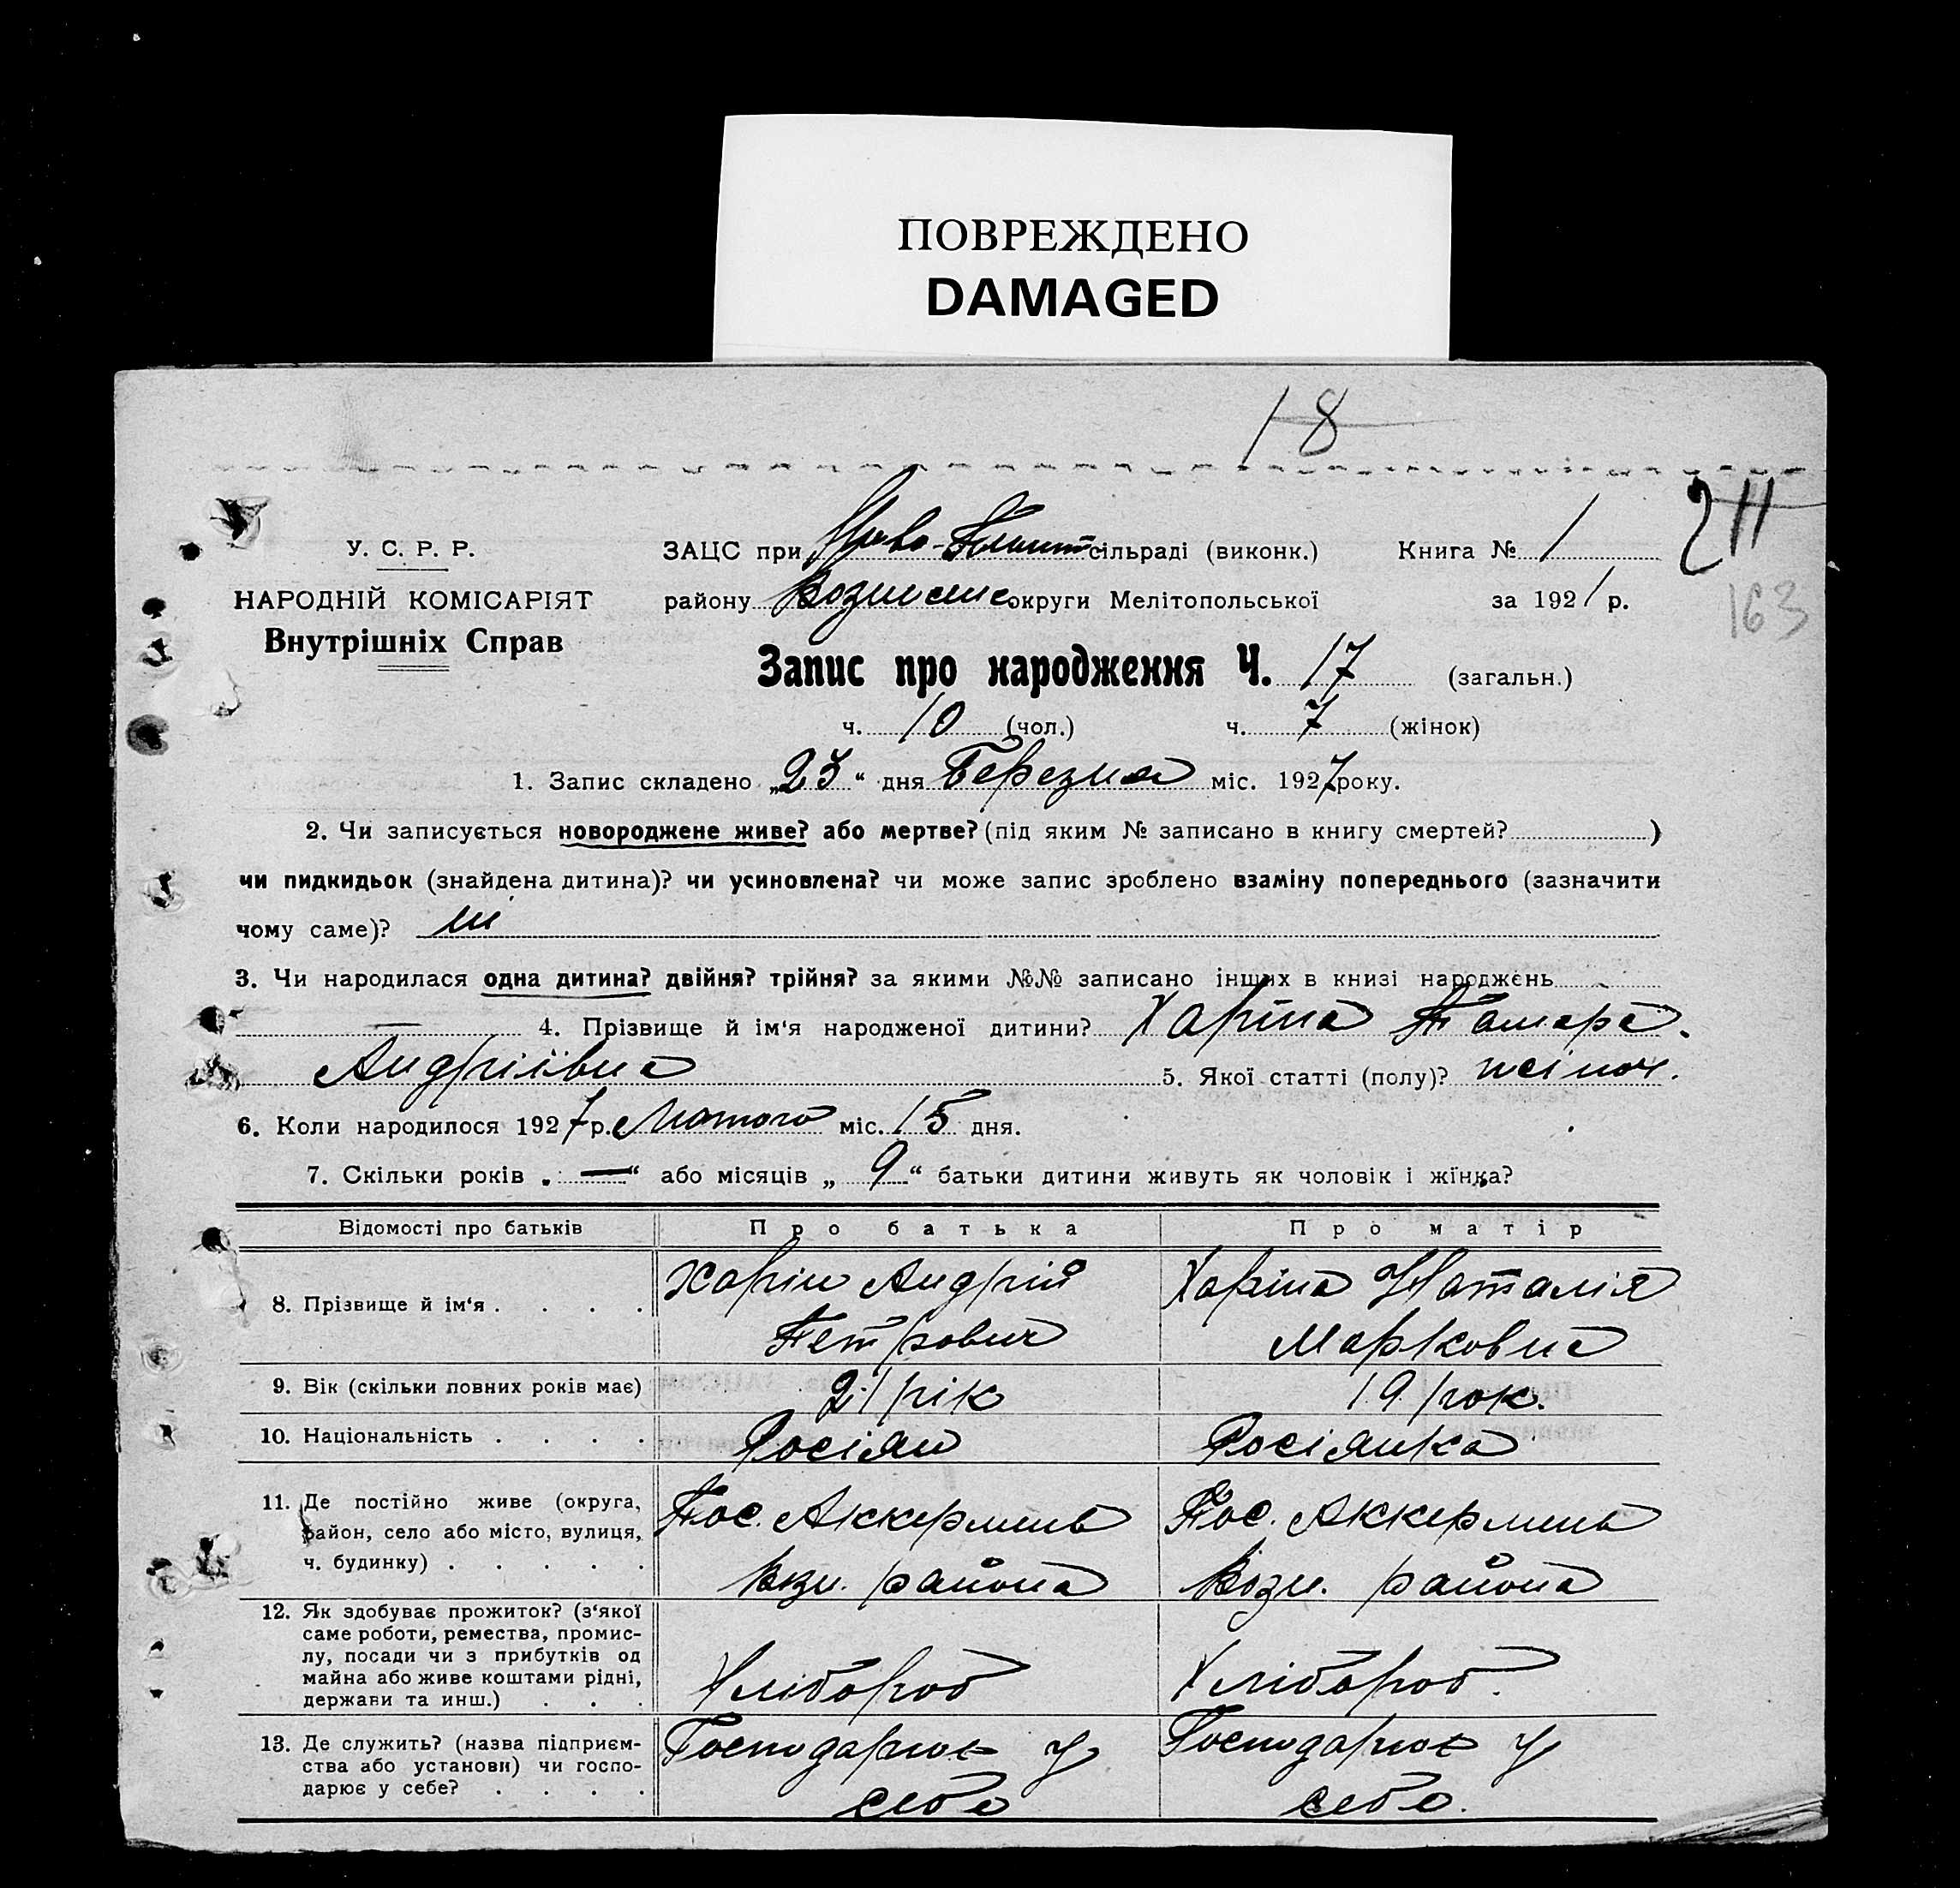 ПОВРЕЖДЕНО
DAMAGED
18
211
163
У. С. Р. Р.
НАРОДНІЙ КОМІСАРІЯТ
Внутрішніх Справ
ЗАЦС при Ново- сільраді (виконк.) Книга № 1
району округи Мелітопольської за 1921 р.
Запис про народження Ч. 17 (загальн.)
ч. 10 (чол.) ч. 7 (жінок)
1. Запис складено „23“ дня Березня міс. 1927 року.
2. Чи записується новороджене живе? або мертве? (під яким № записано в книгу смертей? )
чи пидкидьок (знайдена дитина)? чи усиновлена? чи може запис зроблено взаміну попереднього (зазначити
чому саме)? ні
3. Чи народилася одна дитина? двійня? трійня? за якими №№ записано інших в книзі народжень
— 4. Прізвище й ім'я народженої дитини? Харіна Тамара
Андріївна 5. Якої статті (полу)? жіноч.
6. Коли народилося 1927 р. Лютого міс. 15 дня.
7. Скільки років „—“ або місяців „9“ батьки дитини живуть як чоловік і жінка?
Відомості про батьків Про батька Про матір
8. Прізвище й ім'я . . . . Харін Андрій Харіна Наталія
Петрович Марковна
9. Вік (скільки повних років має) 21 рік 19 рок.
10. Національність . . . . Росіян Росіянка
11. Де постійно живе (округа, Пос. Аккермень Пос. Аккермень
район, село або місто, вулиця,
ч. будинку) . . . . . Возн. района Возн. района
12. Як здобуває прожиток? (з'якої
саме роботи, ремества, промис-
лу, посади чи з прибутків од
майна або живе коштами рідні, Хлібороб Хлібороб.
держави та инш.) . . .
13. Де служить? (назва підприєм- Господарює у Господарює у
ства або установи) чи госпо-
дарює у себе? . . . . себе себе.